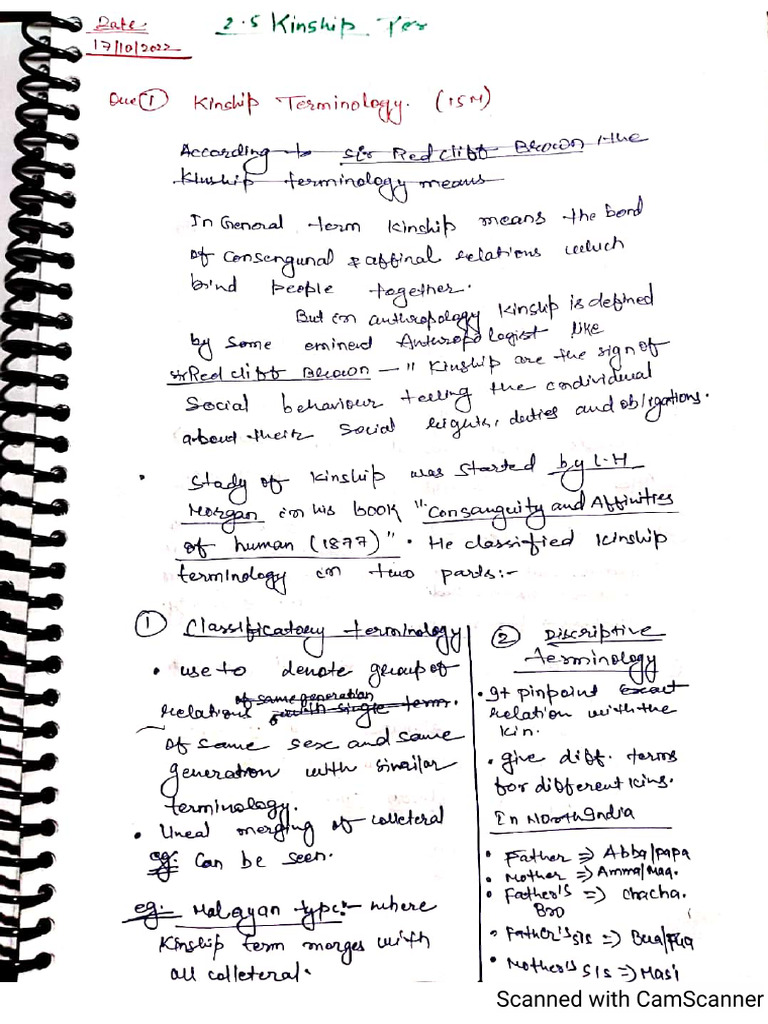 Date:
17/10/2022
2.5 Kinship Ter
Que ① Kinship Terminology. (15M)
According to sir Redcliff Brown the
Kinship terminology means
In General term kinship means the bond
of consengunal & affinal relations which
bind people together.
But in anthropology kinship is defined
by some eminent Anthropologist like
sir Redcliff Brown — " Kinship are the sign of
social behaviour telling the individual
about their social rights, duties and obligations.
• Study of kinship was started by L.H
Morgan in his book "Consanguity and Affinities
of human (1877)" • He classified kinship
terminology in two parts:-
① Classificatory terminology
• use to denote group of
of same generation
relations with single term.
of same sex and same
generation with sinailar
terminology.
• Uneal merging of colleteral
eg: Can be seen.
eg: Malayan type:- where
Kinship term marges with
all colleteral.
② Discriptive
terminology
• It pinpoint exact
relation with the
kin.
• give diff. terms
for different kins.
In North India
• Father ⇒ Abba/papa
• Mother ⇒ Amma/Maa.
• Father's ⇒ chacha.
Bro
• Father's sis ⇒ Bua/Fua
• Mother's sis ⇒ Masi
Scanned with CamScanner